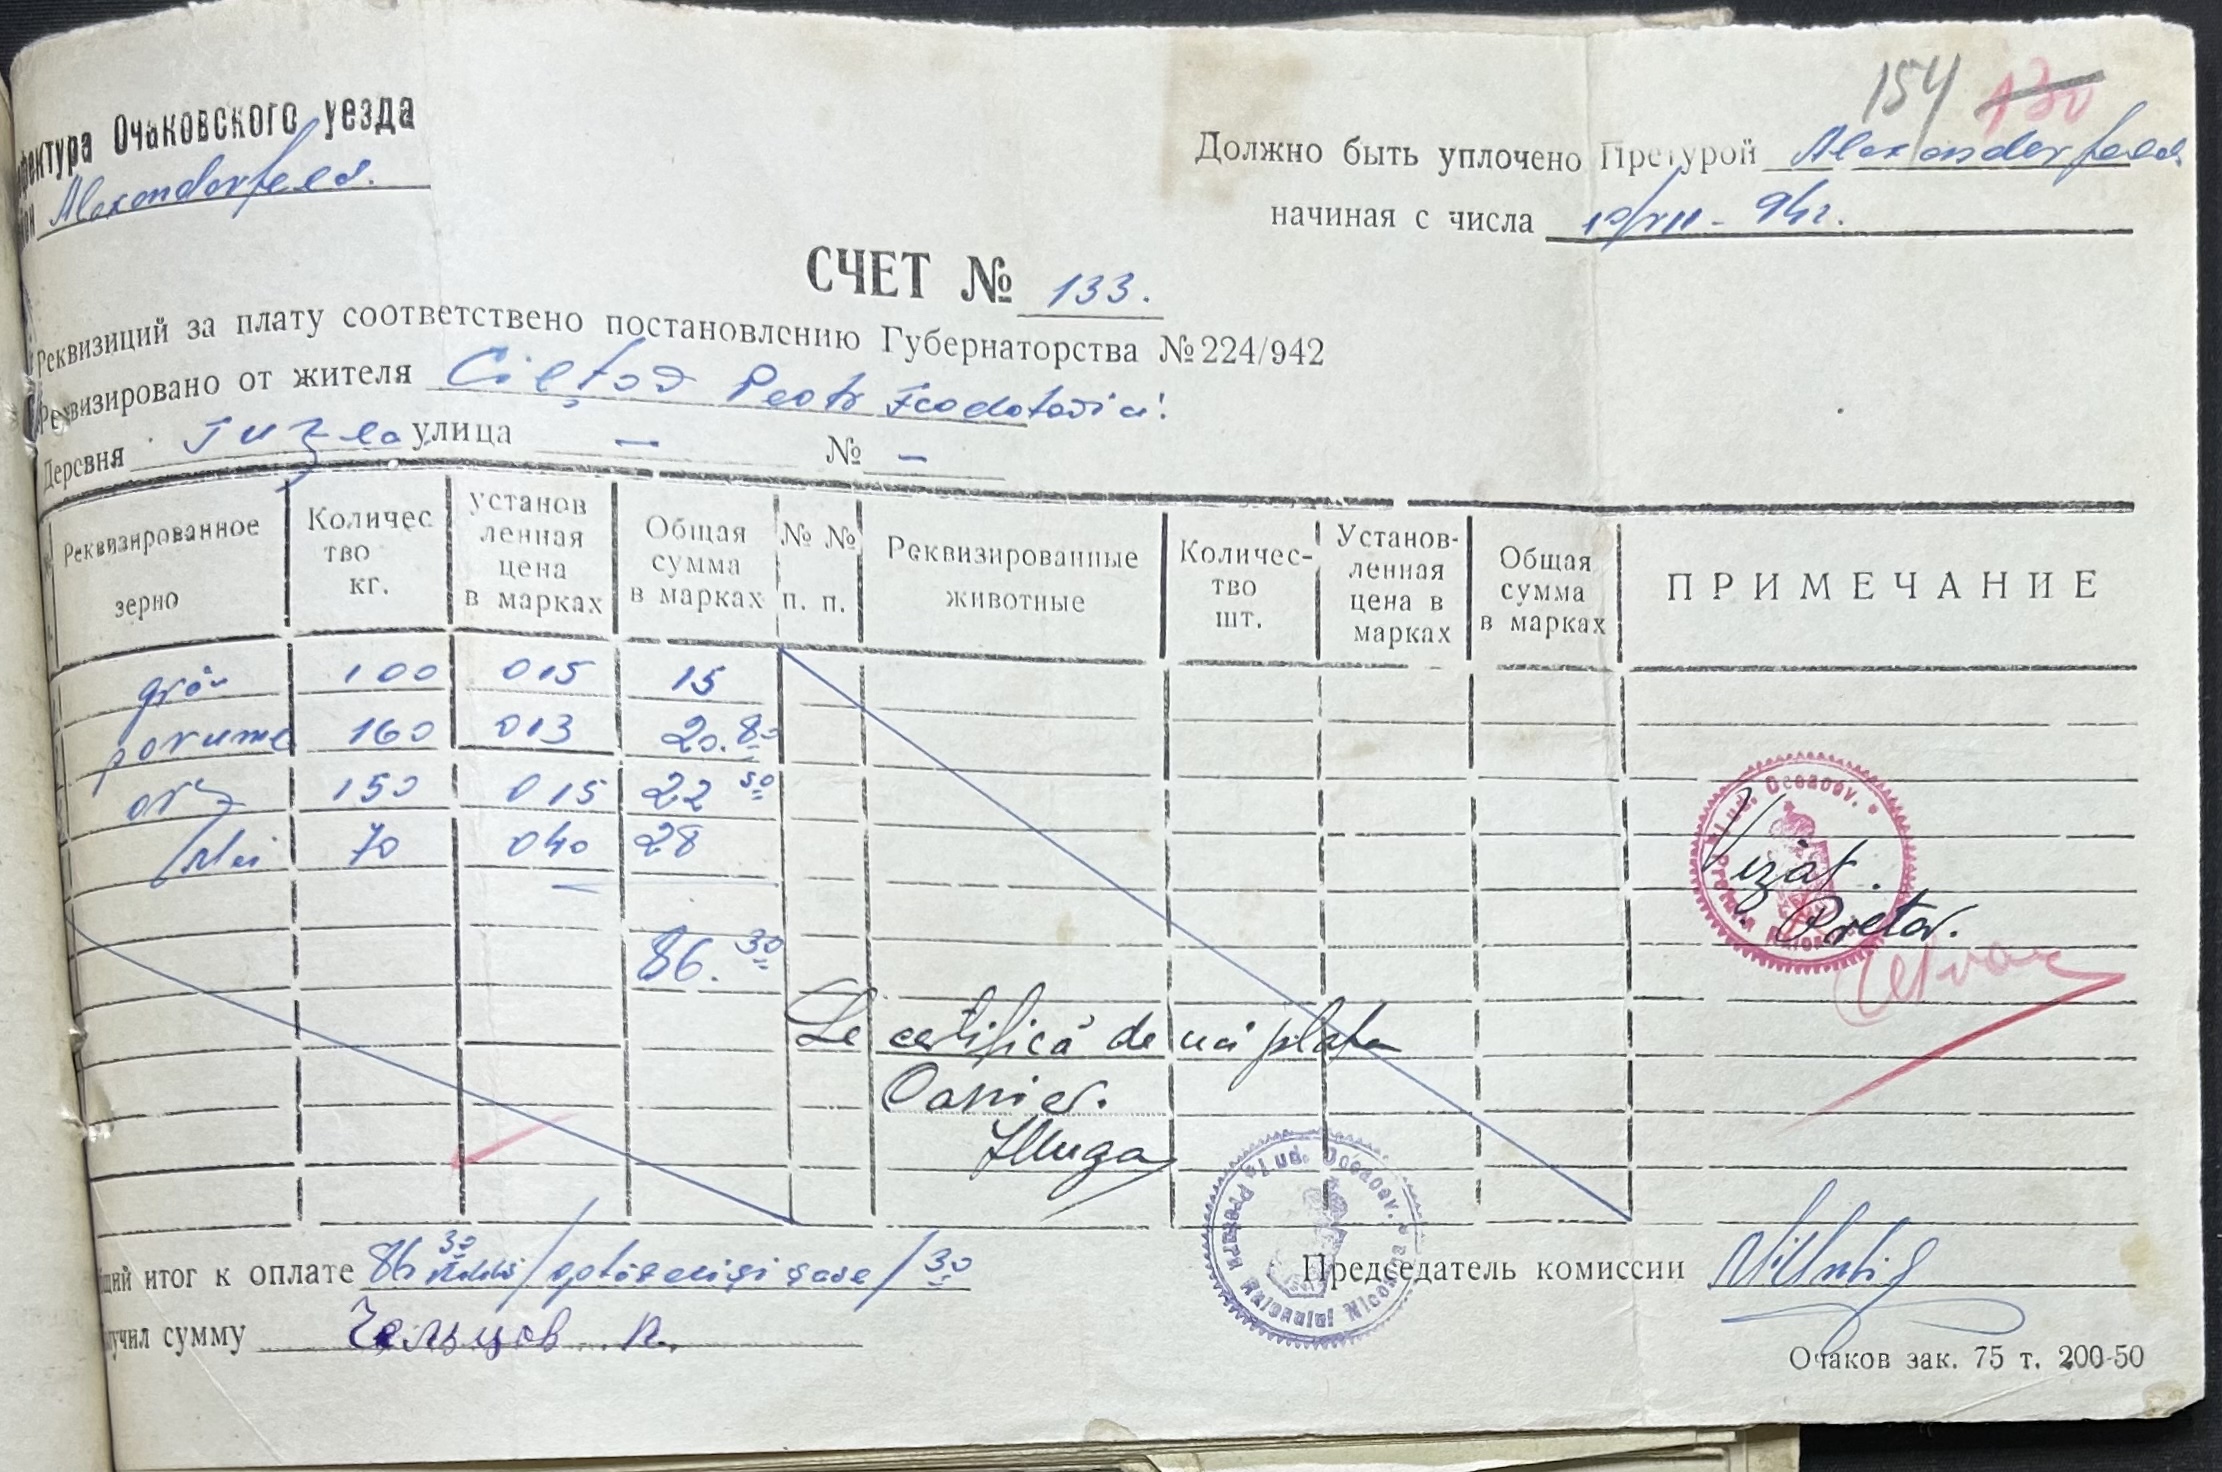 154 130
фектура Очаковского уезда
Alexanderfeld.
Должно быть уплочено Претурой Alexanderfeld
начиная с числа
СЧЕТ № 133.
Реквизиций за плату соответствено постановлению Губернаторства № 224/942
Реквизировано от жителя Cilțov Peotr Feodotovici
Деревня улица — № —
Реквизированное зерно Количество кг. установленная цена в марках Общая сумма в марках №№ п. п. Реквизированные животные Количество шт. Установленная цена в марках Общая сумма в марках ПРИМЕЧАНИЕ
grâu 100 015 15
porumb 160 013 20.80
orz 150 015 22 50
70 040 28
86.30
Jud. Oceacov. Pretura Raionului
Vizat.
Pretor.
Se certifică de noi plata
Casier.
Jud. Oceacov. Pretura Raionului
щий итог к оплате 86 30 /optzecișișase/30
Председатель комиссии
лучил сумму Чельцов П.
Очаков зак. 75 т. 200-50